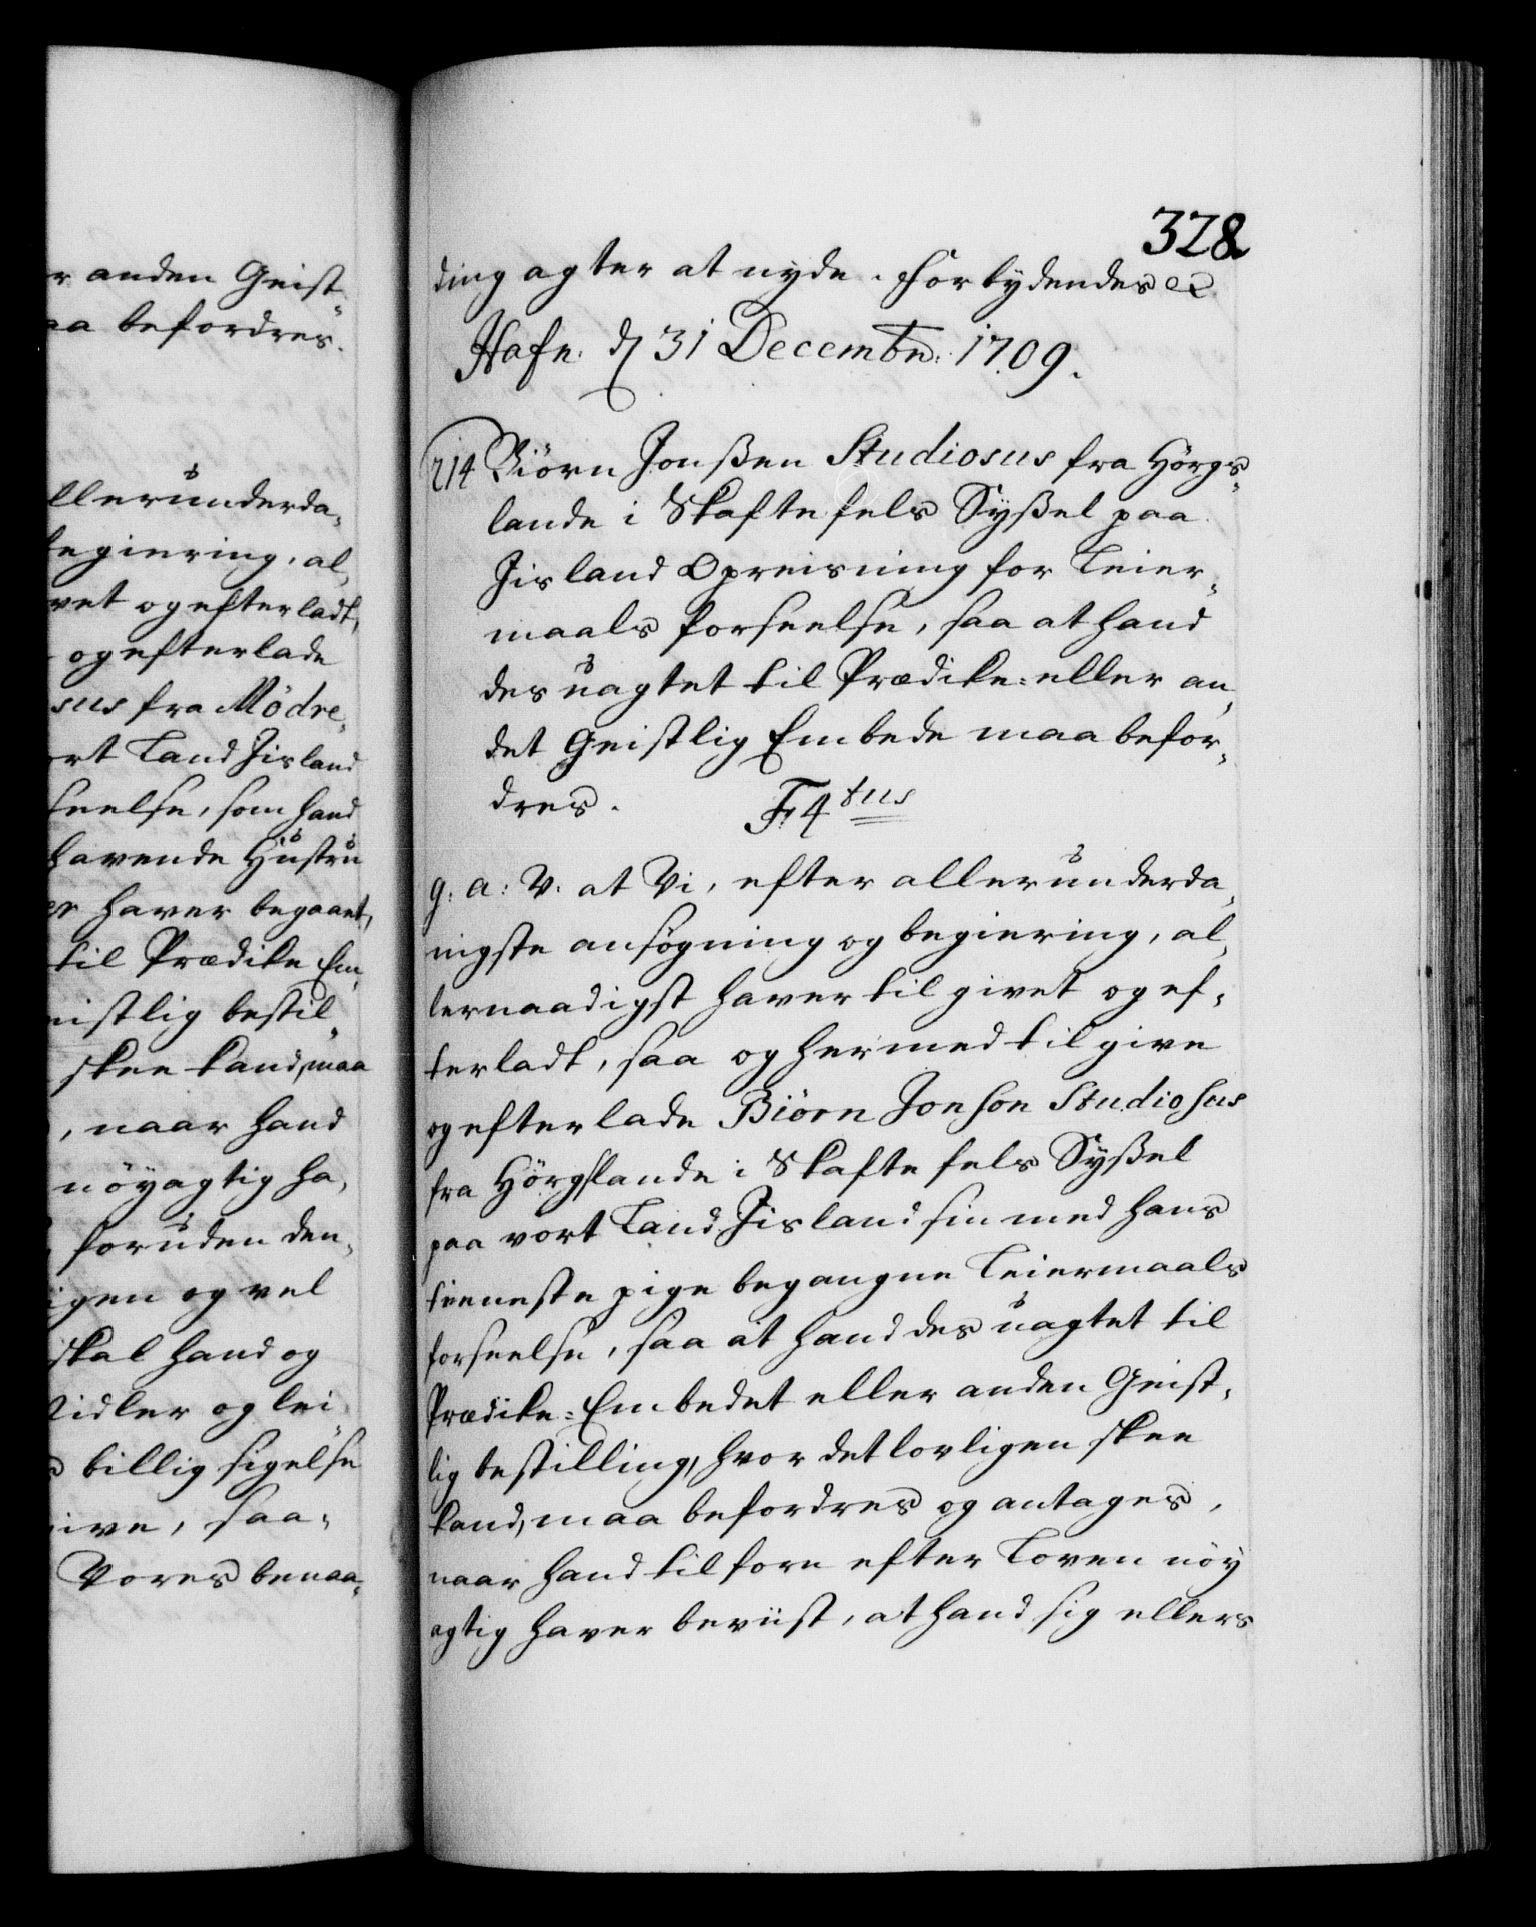 r anden Geist
aa befordres.
llerunderda,
begiering, al,
vet og efterladt,
og efterlade
sus fra Mödre,
ort Land Jisland
seelse, som hand
havende Hustru
er haver begaaet,
til Prædike Em,
eistlig bestil,
skee kand, maa
, naar hand
nöyagtig ha,
foruden den,
igen og vel
skal hand og
Midler og lei,
billig sigelse
give, saa,
Vores benaa,
328
ding agter at nyde. Forbydendes &c.
Hafn. d 31 Decembr: 1709.
214 Biörn Jonßen Studiosus fra Hörgs,
lande i Skaftefels Syßel paa
Jisland Opreisning for Leier,
maals forseelse, saa at hand
des uagtet til Prædike: eller an,
det Geistlig Embede maa befor,
dres. F: 4tus
g: a: V: at Vi, efter allerunderda,
nigste ansögning og begiering, al,
lernaadigst haver tilgivet og ef,
terladt, saa og hermed tilgive
og efterlade Biörn Jonson Studiosus
fra Hörgslande i Skaftefels Syßel
paa vort Land Jisland sin med hans
tieneste pige begangne Leiermaals
forseelse, saa at hand des uagtet til
Prædike: Embedet eller anden Geist,
lig bestilling, hvor det lovligen skee
kand, maa befordres og antages,
naar hand tilforn efter Loven nöy
agtig haver beviist, at hand sig ellers